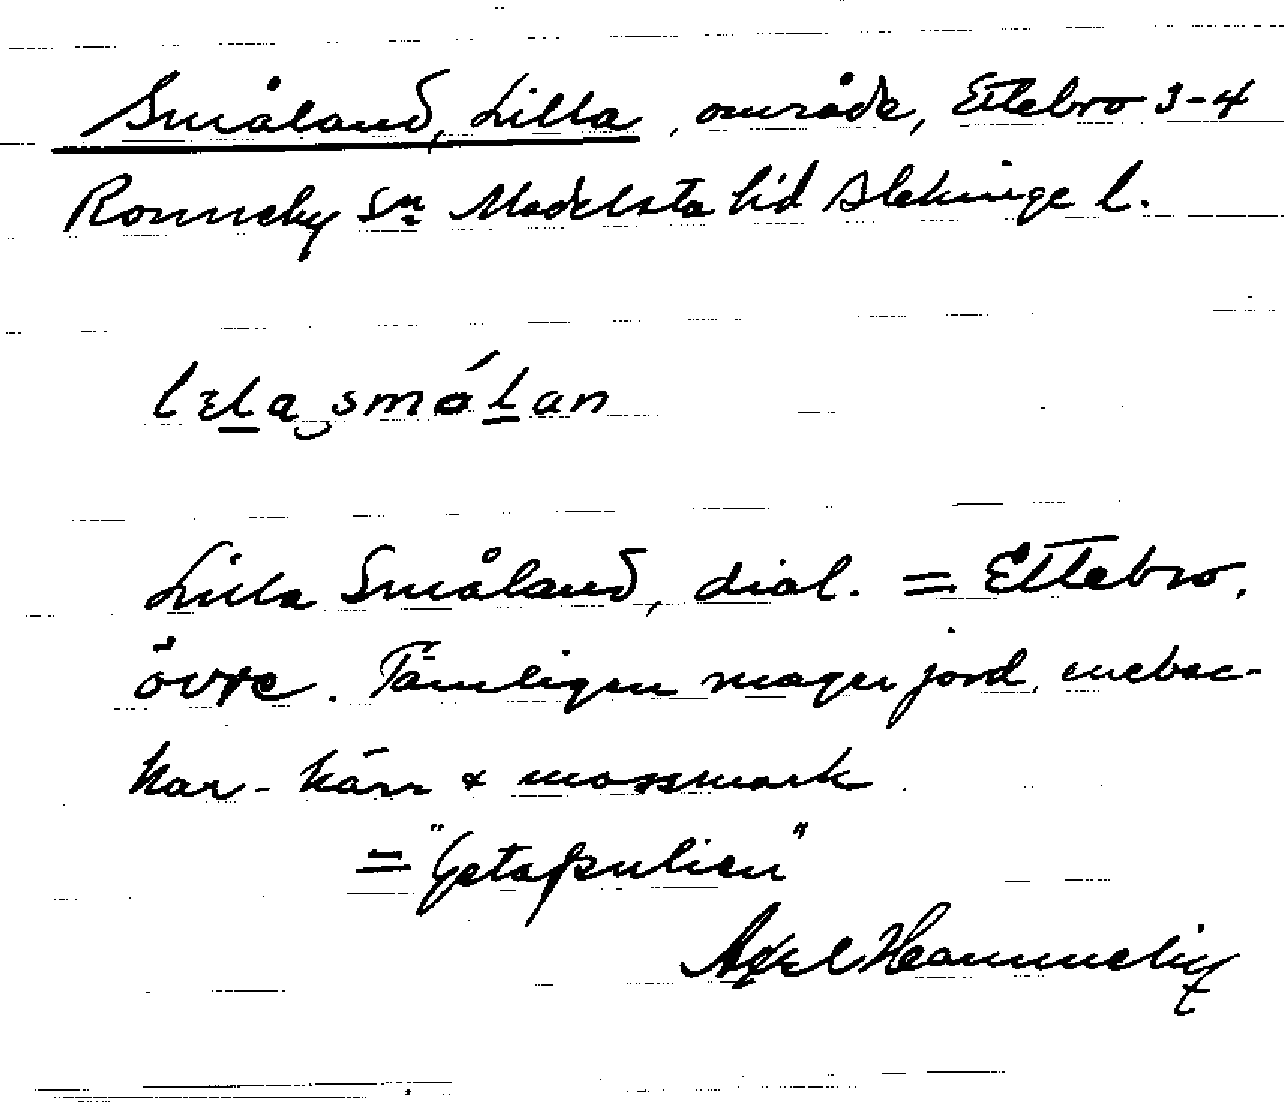 Småland, Lilla, område, Ettebro 3-4
Ronneby sn Medelsta hd Blekinge l.
lɛla smålan
Lilla Småland, dial. = Ettebro,
övre. Tämligen mager jord, enebac-
kar - kärr & mossmark
= "Getapulien"
Axel